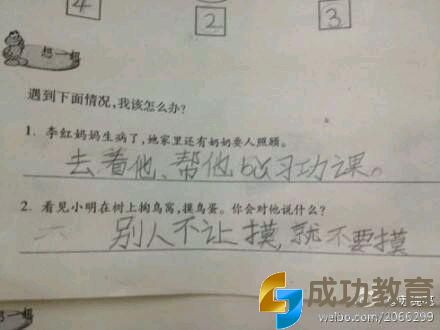 4
2
3
想一想
遇到下面情况,我该怎么办?
1. 李红妈妈生病了,她家里还有奶奶要人照顾。
去看他、帮他bǔ习功课。
2. 看见小明在树上掏鸟窝,摸鸟蛋。你会对他说什么?
别人不让摸,就不要摸
成功教育
weibo.com/2066299